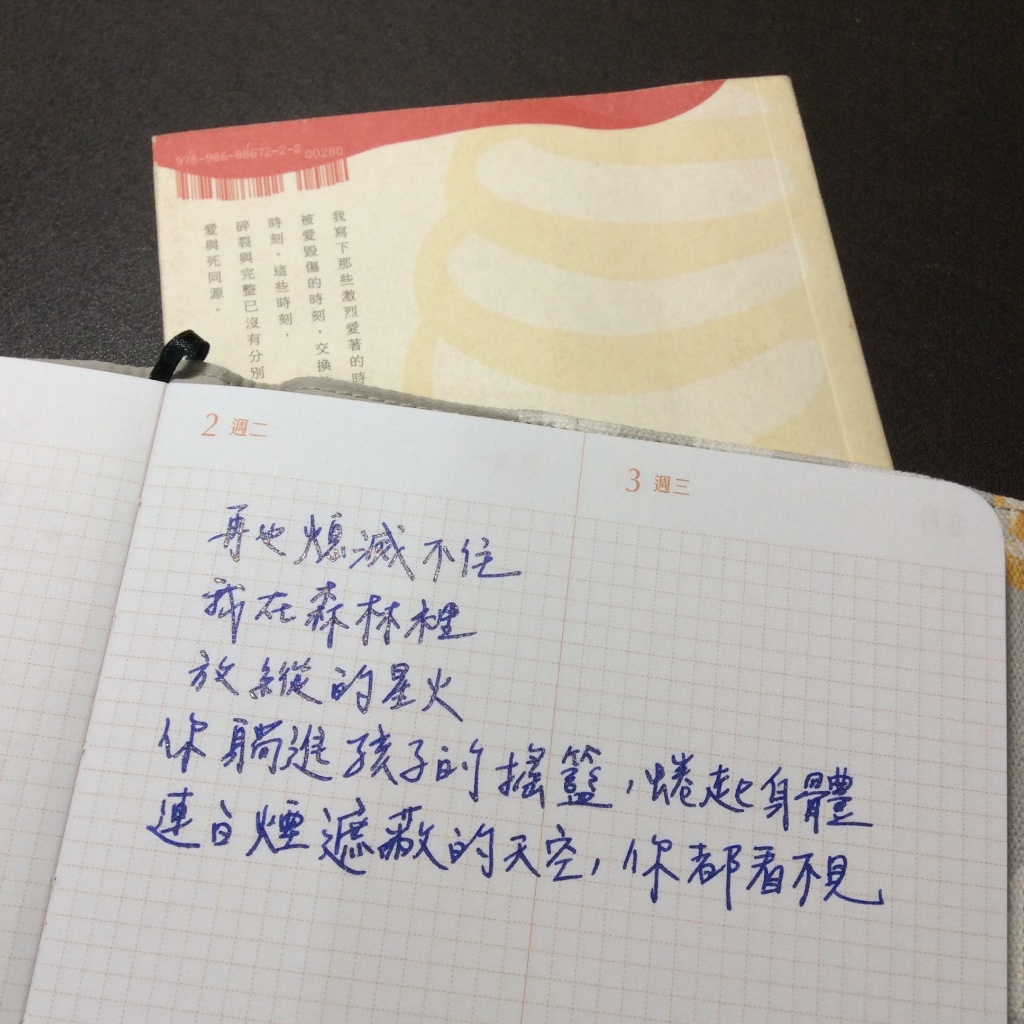 978-986-88672-2-2 00280
我寫下那些激烈愛著的時
被愛毀傷的時刻，交換
時刻。這些時刻，
碎裂與完整已沒有分別
愛與死同源。
2 週二
3 週三
再也熄滅不住
我在森林裡
放縱的星火
你躺進孩子的搖籃，蜷起身體
連白煙遮蔽的天空，你都看不見